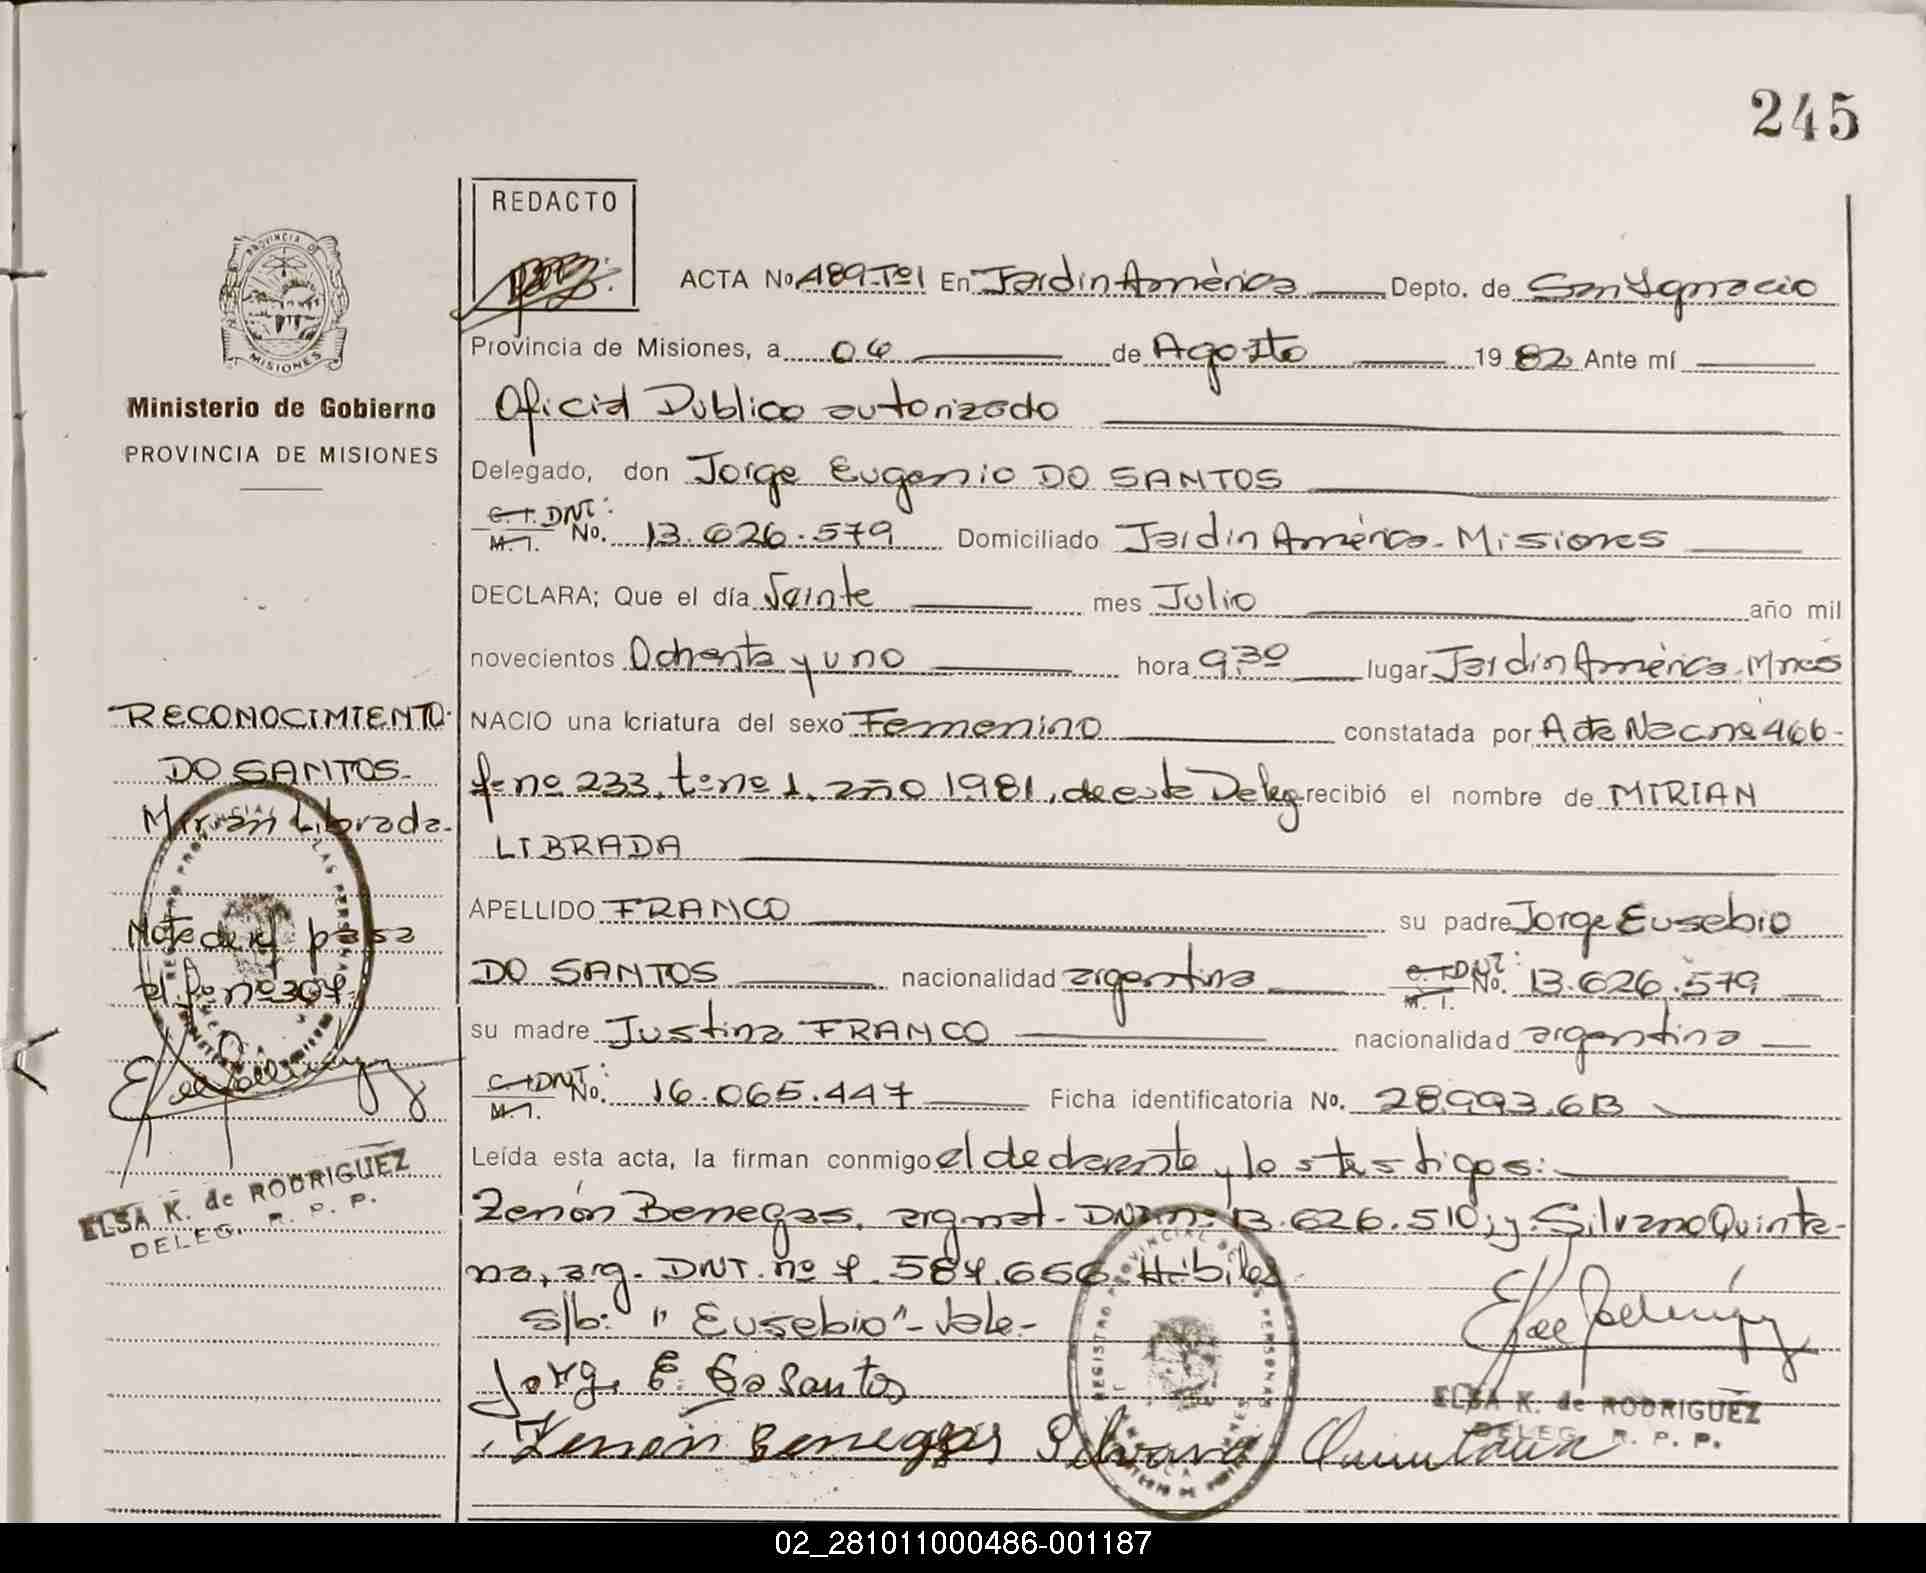 245
REDACTO
ACTA No 489-Tº1 En Jardin Amèrica Depto. de San Ygnacio
PROVINCIA DE
MISIONES
Provincia de Misiones, a 04 de Agosto 1982 Ante mí
Ministerio de Gobierno
PROVINCIA DE MISIONES
Oficial Publico autorizado
Delegado, don Jorge Eugenio DO SANTOS
C.I. DNI: M.I. No. 13.626.579 Domiciliado Jardin Amèrica - Misiones
DECLARA; Que el día Veinte mes Julio año mil
novecientos Ochenta y uno hora 9,30 lugar Jardin Amèrica. Mnes
RECONOCIMIENTO-
DO SANTOS-
Mirian Librada-
Nota de ref. pasa
al fº nº 304.
ELSA K. de RODRIGUEZ
DELEG. R. P. P.
NACIO una criatura del sexo Femenino constatada por Acta Nac nº 466-
fº nº 233, tº nº 1, año 1981, de esta Deleg recibió el nombre de MIRIAN
LIBRADA
APELLIDO FRANCO su padre Jorge Eusebio
DO SANTOS nacionalidad argentina C.I. DNI: M.I. No. 13.626.579
su madre Justina FRANCO nacionalidad argentina
C.I. DNI: M.I. No. 16.065.447 Ficha identificatoria No. 28.993.6B
Leída esta acta, la firman conmigo el declarante y los testigos:
Zenón Benegas, arg nat - DNI nº 13.626.510; y Silvano Quinta-
na, arg. DNI. nº 7.584.656 Hàbiles
s/b: "Eusebio"- Vale-
Jorg. E. Do Santos
Zenón Benegas Silvano Quintana
ELSA K. de RODRIGUEZ
DELEG. R. P. P.
REGISTRO PROVINCIAL DE LAS PERSONAS
02_281011000486-001187